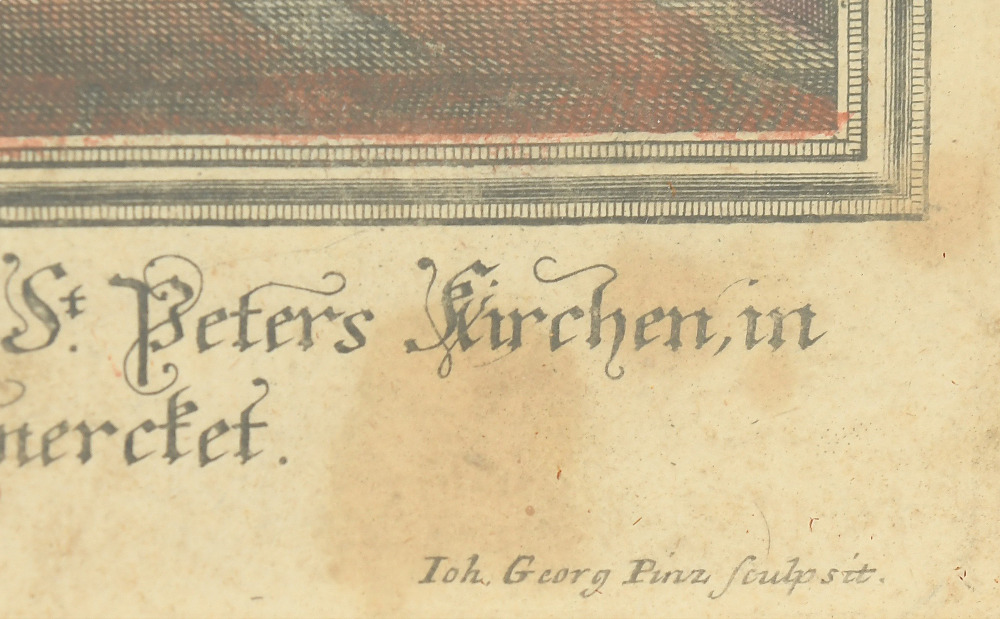 St. Peters Kirchen, in
mercket.
Ioh. Georg Pinz sculpsit.